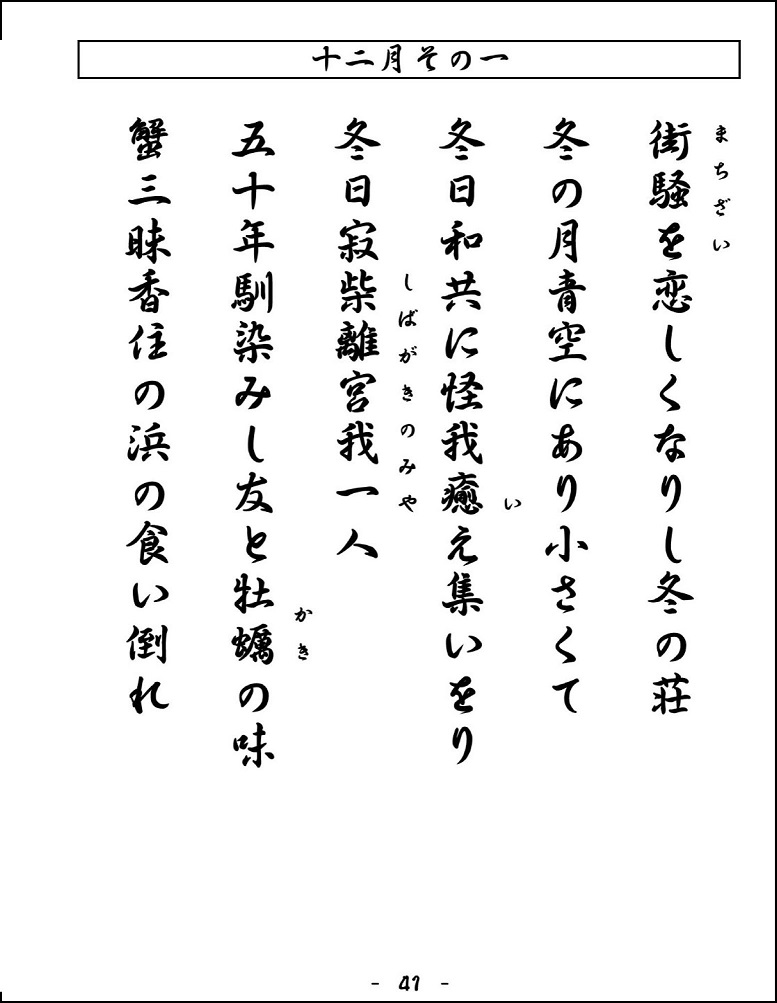 十二月その一
まちざい
街騒を恋しくなりし冬の荘
冬の月青空にあり小さくて
い
冬日和共に怪我癒え集いをり
しばがきのみや
冬日寂柴離宮我一人
かき
五十年馴染みし友と牡蠣の味
蟹三昧香住の浜の食い倒れ
- 41 -